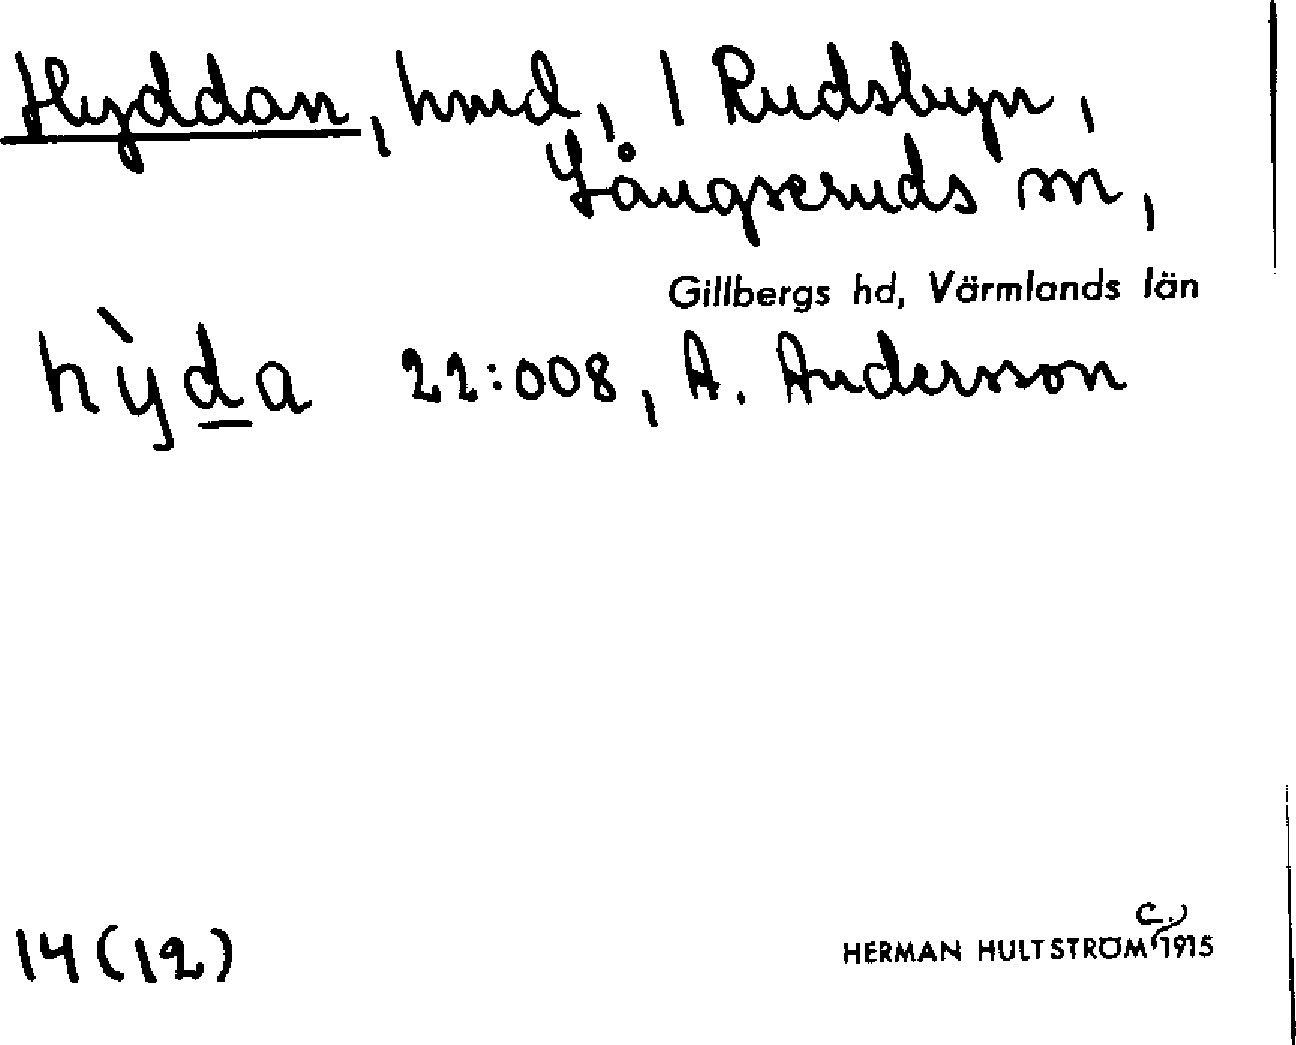 Hyddan, hmd, 1 Rudsbyn,
Långseruds sn,
Gillbergs hd, Värmlands län
hỳda 22:008, A. Andersson
14(12)
c.
HERMAN HULTSTRÖM 1915